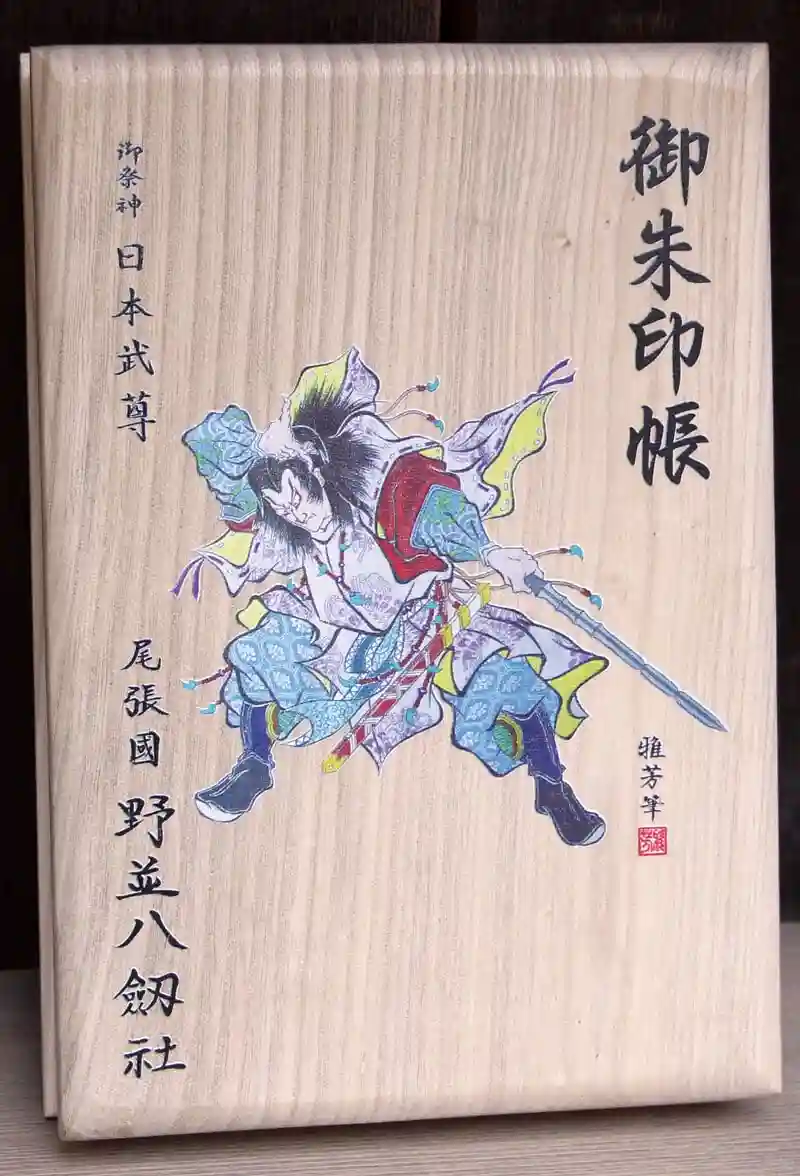 御朱印帳
雅芳筆
御祭神 日本武尊
尾張國 野並八劔社